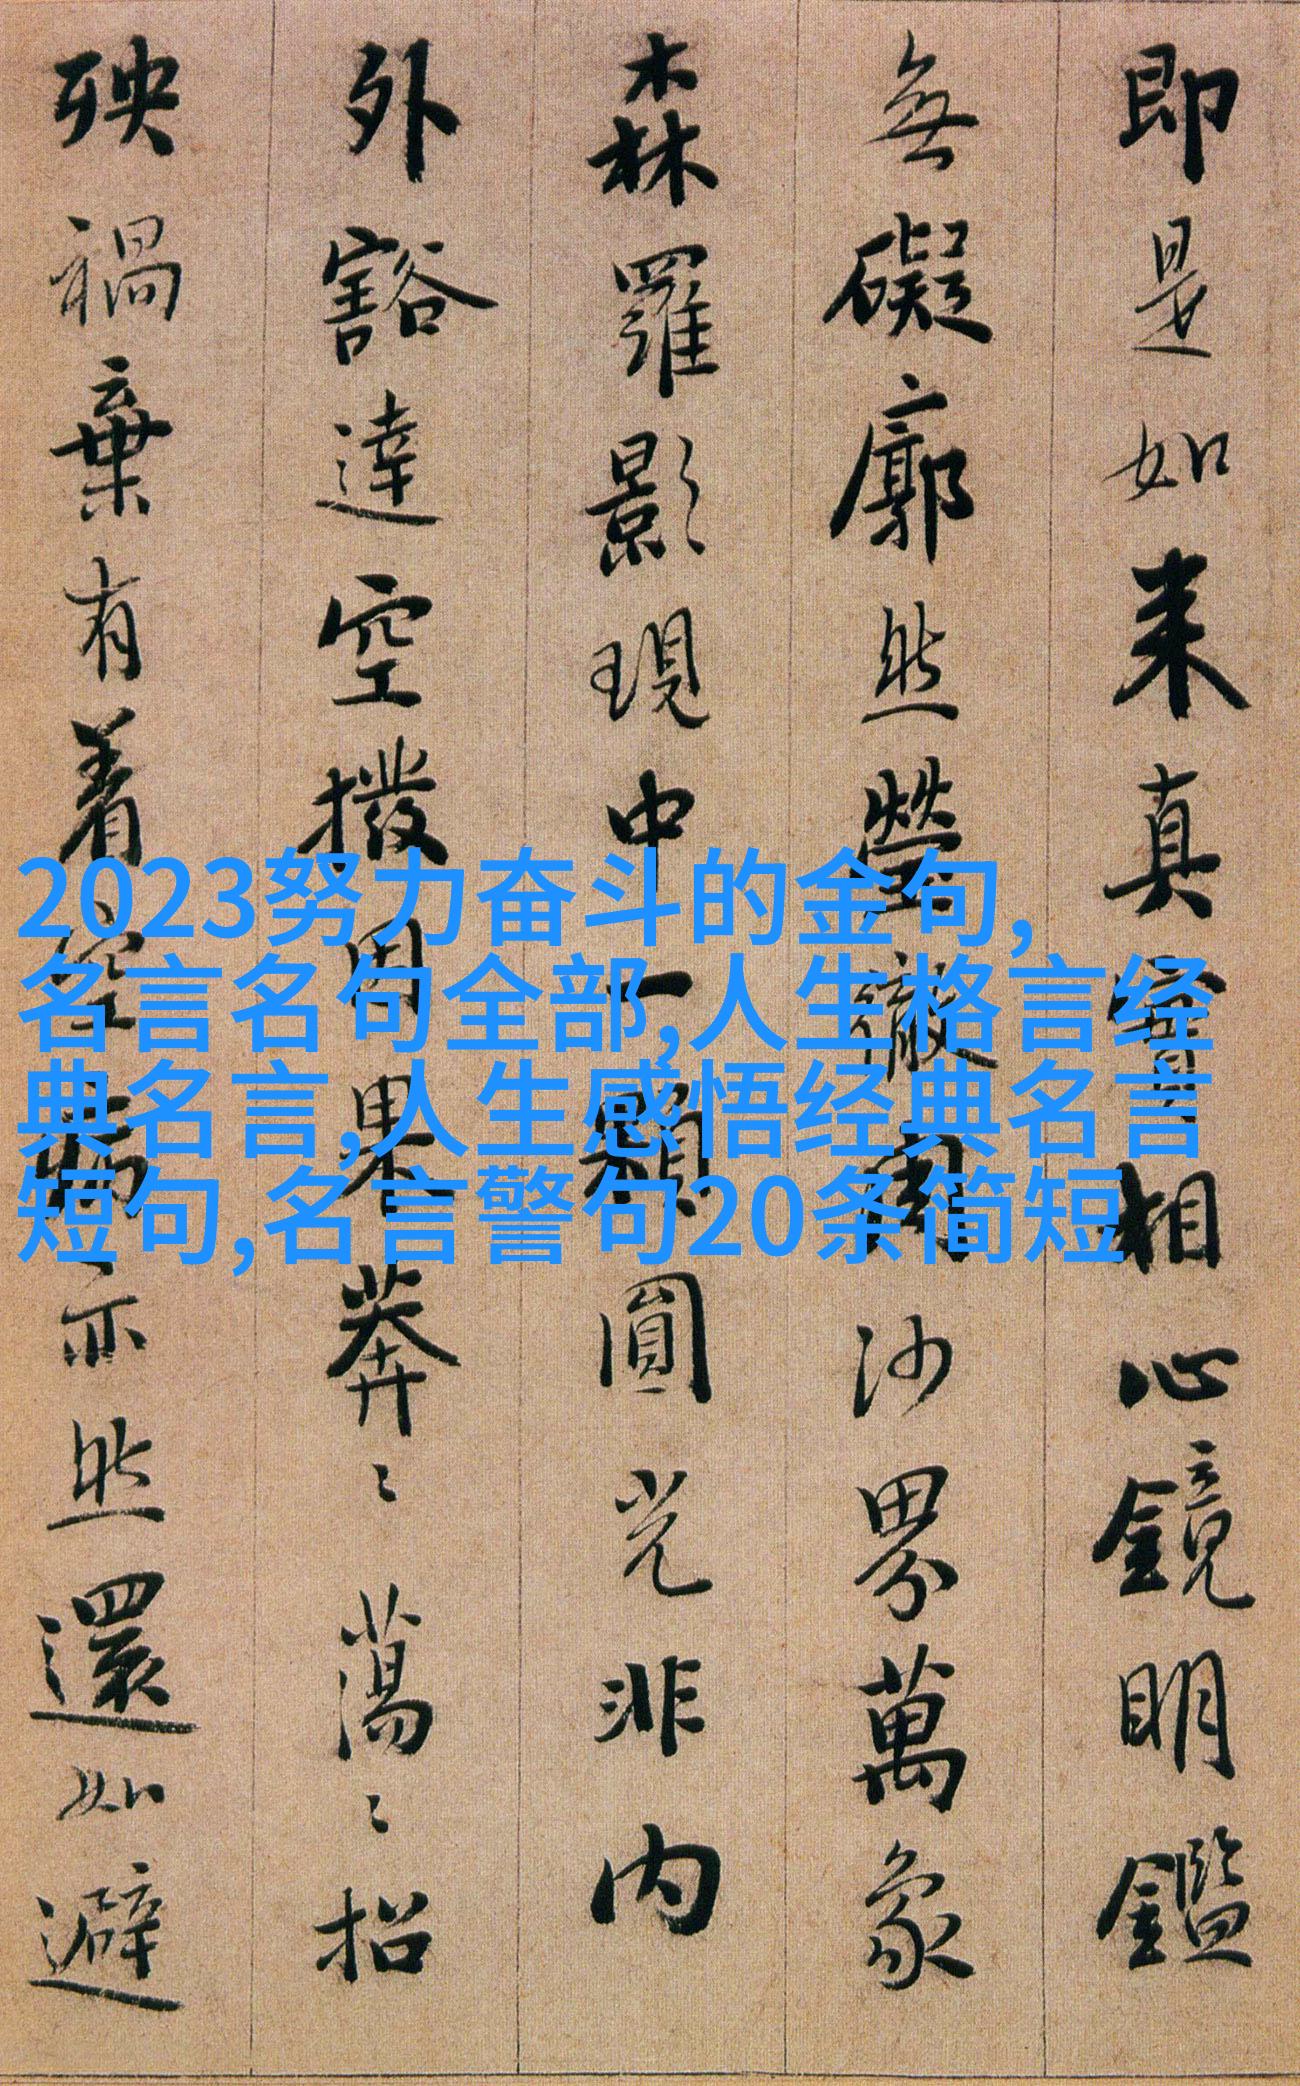 即是如来真實相心鏡明鑑
無礙廓然瑩徹周沙界萬象
森羅影現中一顆圓光非内
外豁達空撥因果莽〻蕩〻招
殃禍棄有着空病亦然還如避
2023努力奋斗的金句,
名言名句全部,人生格言经
典名言,人生感悟经典名言
短句,名言警句20条简短